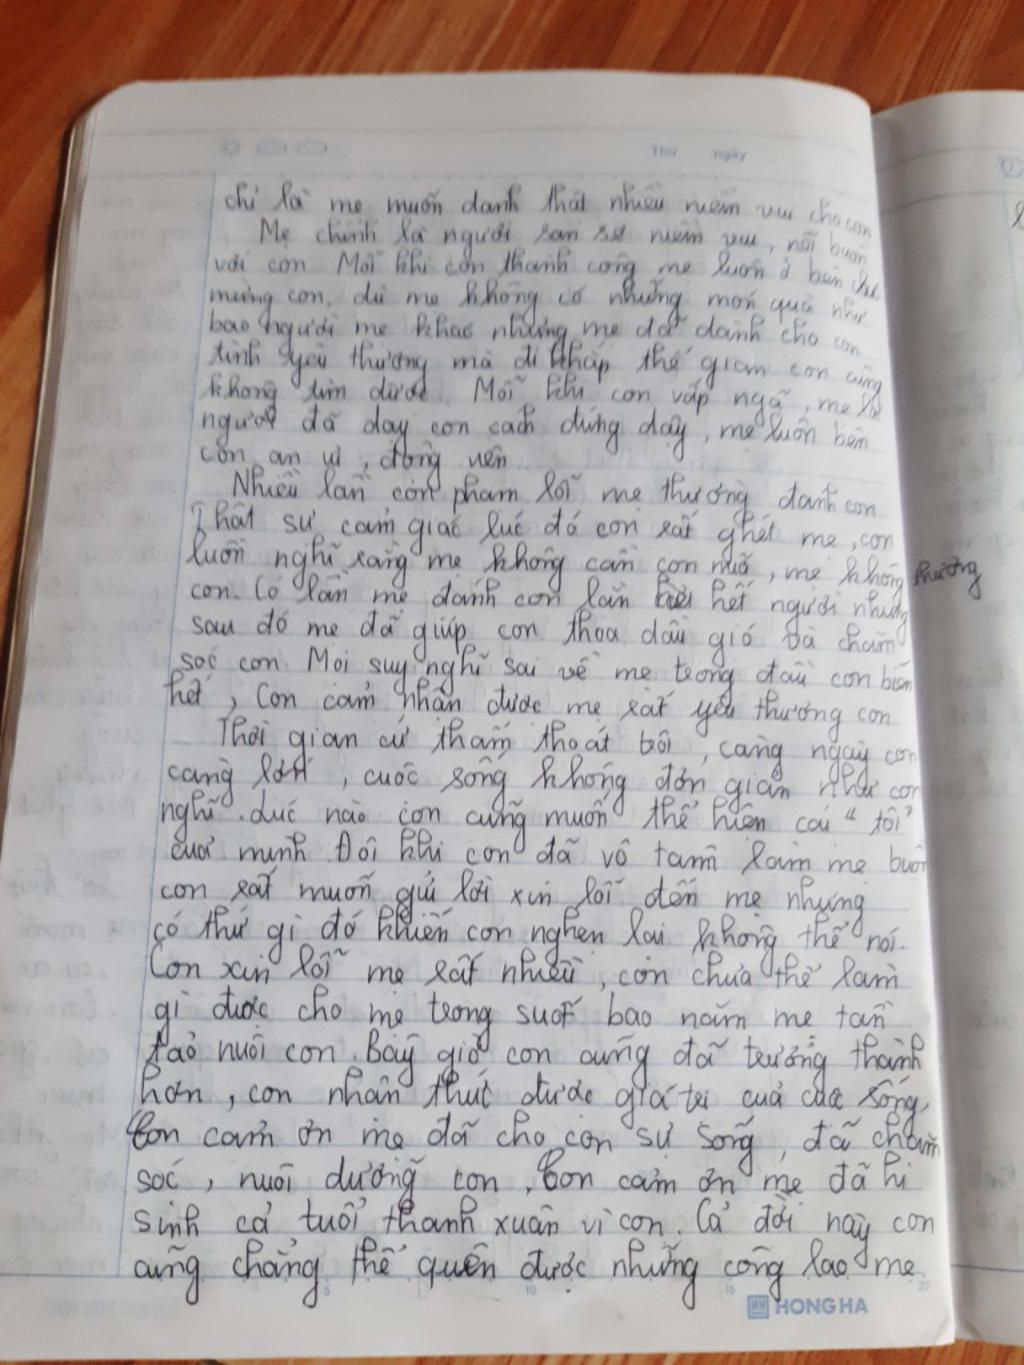 Thứ ngày
chỉ là mẹ muốn dành thật nhiều niềm vui cho con
Mẹ chính là người san sẻ niềm vui, nỗi buồn
với con. Mỗi khi con thành công mẹ luôn ở bên chúc
mừng con, dù mẹ không có những món quà như
bao người mẹ khác nhưng mẹ đã dành cho con
tình yêu thương mà đi khắp thế gian con cũng
không tìm được. Mỗi khi con vấp ngã, mẹ là
người đã dạy con cách đứng dậy, mẹ luôn bên
con an ủi, động viên
Nhiều lần con phạm lỗi mẹ thường đánh con
Thật sự cảm giác lúc đó con rất ghét mẹ, con
luôn nghĩ rằng mẹ không cần con nữa, mẹ không thương
con. Có lần mẹ đánh con lằn hết người nhưng
sau đó mẹ đã giúp con thoa dầu gió và chăm
sóc con. Mọi suy nghĩ sai về mẹ trong đầu con biến
hết, Con cảm nhận được mẹ rất yêu thương con
Thời gian cứ thấm thoát trôi, càng ngày con
càng lớn, cuộc sống không đơn giản như con
nghĩ. Lúc nào con cũng muốn thể hiện cái "tôi"
của mình. Đôi khi con đã vô tâm làm mẹ buồn
con rất muốn gửi lời xin lỗi đến mẹ nhưng
có thứ gì đó khiến con nghẹn lại không thể nói.
Con xin lỗi mẹ rất nhiều, con chưa thể làm
gì được cho mẹ trong suốt bao năm mẹ tần
tảo nuôi con. Bây giờ con cũng đã trưởng thành
hơn, con nhận thức được giá trị của cuộc sống,
Con cảm ơn mẹ đã cho con sự sống, đã chăm
sóc, nuôi dưỡng con, Con cảm ơn mẹ đã hi
sinh cả tuổi thanh xuân vì con. Cả đời này con
cũng chẳng thể quên được những công lao mẹ
5 10 15 20
HONG HA